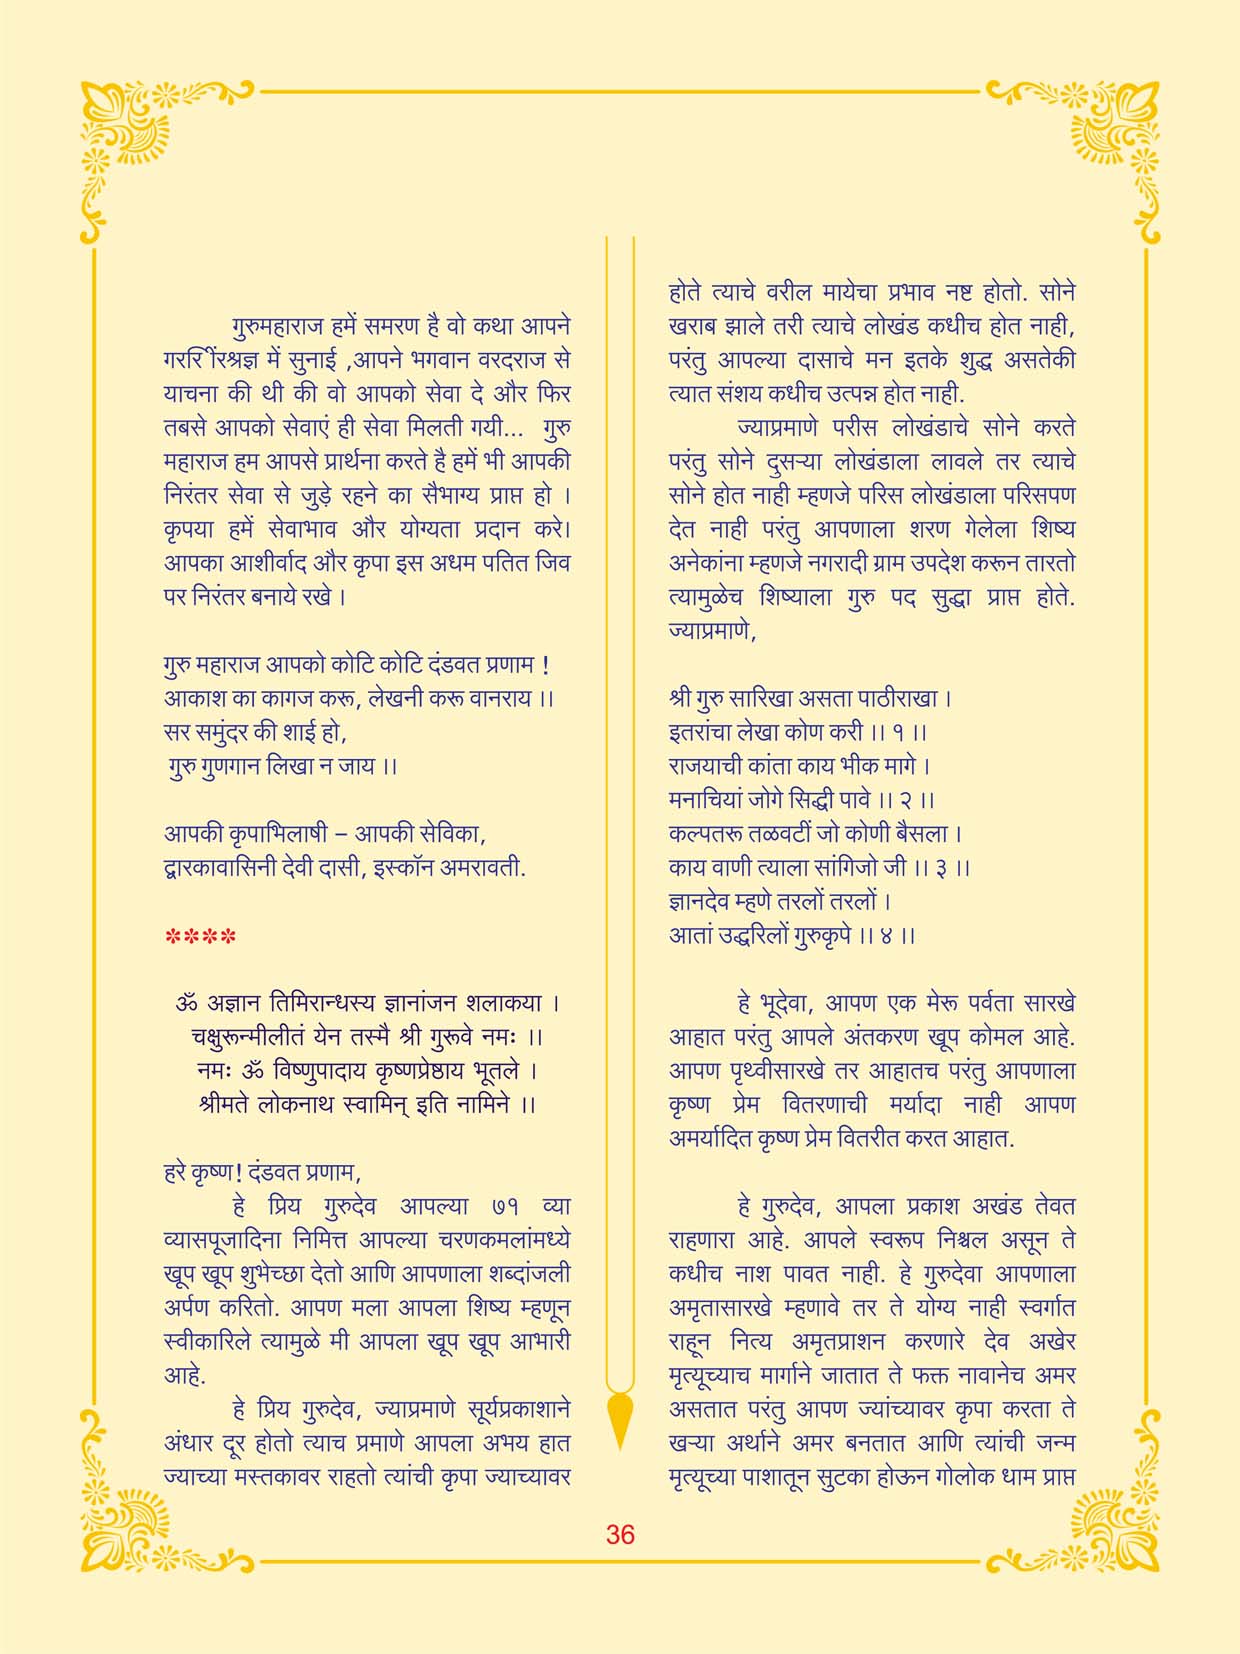 गुरुमहाराज हमें समरण है वो कथा आपने
में सुनाई ,आपने भगवान वरदराज से
याचना की थी की वो आपको सेवा दे और फिर
तबसे आपको सेवाएं ही सेवा मिलती गयी... गुरु
महाराज हम आपसे प्रार्थना करते है हमें भी आपकी
निरंतर सेवा से जुड़े रहने का सैभाग्य प्राप्त हो ।
कृपया हमें सेवाभाव और योग्यता प्रदान करे।
आपका आशीर्वाद और कृपा इस अधम पतित जिव
पर निरंतर बनाये रखे ।
गुरु महाराज आपको कोटि कोटि दंडवत प्रणाम !
आकाश का कागज करू, लेखनी करू वानराय ।।
सर समुंदर की शाई हो,
गुरु गुणगान लिखा न जाय ।।
आपकी कृपाभिलाषी – आपकी सेविका,
द्वारकावासिनी देवी दासी, इस्कॉन अमरावती.
****
ॐ अज्ञान तिमिरान्धस्य ज्ञानांजन शलाकया ।
चक्षुरून्मीलीतं येन तस्मै श्री गुरूवे नमः ।।
नमः ॐ विष्णुपादाय कृष्णप्रेष्ठाय भूतले ।
श्रीमते लोकनाथ स्वामिन् इति नामिने ।।
हरे कृष्ण! दंडवत प्रणाम,
हे प्रिय गुरुदेव आपल्या ७१ व्या
व्यासपूजादिना निमित्त आपल्या चरणकमलांमध्ये
खूप खूप शुभेच्छा देतो आणि आपणाला शब्दांजली
अर्पण करितो. आपण मला आपला शिष्य म्हणून
स्वीकारिले त्यामुळे मी आपला खूप खूप आभारी
आहे.
हे प्रिय गुरुदेव, ज्याप्रमाणे सूर्यप्रकाशाने
अंधार दूर होतो त्याच प्रमाणे आपला अभय हात
ज्याच्या मस्तकावर राहतो त्यांची कृपा ज्याच्यावर
होते त्याचे वरील मायेचा प्रभाव नष्ट होतो. सोने
खराब झाले तरी त्याचे लोखंड कधीच होत नाही,
परंतु आपल्या दासाचे मन इतके शुद्ध असतेकी
त्यात संशय कधीच उत्पन्न होत नाही.
ज्याप्रमाणे परीस लोखंडाचे सोने करते
परंतु सोने दुसऱ्या लोखंडाला लावले तर त्याचे
सोने होत नाही म्हणजे परिस लोखंडाला परिसपण
देत नाही परंतु आपणाला शरण गेलेला शिष्य
अनेकांना म्हणजे नगरादी ग्राम उपदेश करून तारतो
त्यामुळेच शिष्याला गुरु पद सुद्धा प्राप्त होते.
ज्याप्रमाणे,
श्री गुरु सारिखा असता पाठीराखा ।
इतरांचा लेखा कोण करी ।। १ ।।
राजयाची कांता काय भीक मागे ।
मनाचियां जोगे सिद्धी पावे ।। २ ।।
कल्पतरू तळवटीं जो कोणी बैसला ।
काय वाणी त्याला सांगिजो जी ।। ३ ।।
ज्ञानदेव म्हणे तरलों तरलों ।
आतां उद्धरिलों गुरुकृपे ।। ४ ।।
हे भूदेवा, आपण एक मेरू पर्वता सारखे
आहात परंतु आपले अंतकरण खूप कोमल आहे.
आपण पृथ्वीसारखे तर आहातच परंतु आपणाला
कृष्ण प्रेम वितरणाची मर्यादा नाही आपण
अमर्यादित कृष्ण प्रेम वितरीत करत आहात.
हे गुरुदेव, आपला प्रकाश अखंड तेवत
राहणारा आहे. आपले स्वरूप निश्चल असून ते
कधीच नाश पावत नाही. हे गुरुदेवा आपणाला
अमृतासारखे म्हणावे तर ते योग्य नाही स्वर्गात
राहून नित्य अमृतप्राशन करणारे देव अखेर
मृत्यूच्याच मार्गाने जातात ते फक्त नावानेच अमर
असतात परंतु आपण ज्यांच्यावर कृपा करता ते
खऱ्या अर्थाने अमर बनतात आणि त्यांची जन्म
मृत्यूच्या पाशातून सुटका होऊन गोलोक धाम प्राप्त
36